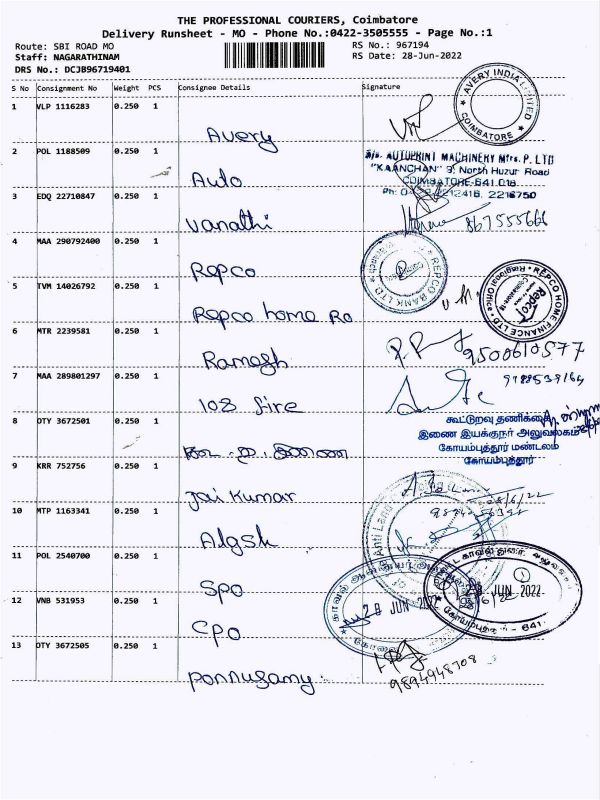 THE PROFESSIONAL COURIERS, Coimbatore
Delivery Runsheet - MO - Phone No.:0422-3505555 - Page No.:1
Route: SBI ROAD MO
RS No.: 967194
Staff: NAGARATHINAM
RS Date: 28-Jun-2022
DRS No.: DCJB96719401
S No Consignment No Weight PCS Consignee Details Signature
1 VLP 1116283 0.250 1
AVERY INDIA LIMITED
COIMBATORE
Avery
2 POL 1188509 0.250 1
AUTOPRINT MACHINERY Mfrs. P. LTD
"KAANCHAN" 9, North Huzur Road
COIMBATORE-641 018
2216750
Auto
3 EDQ 22710847 0.250 1
867555666
Vanathi
4 MAA 290792400 0.250 1
REPCO BANK LTD
Repco
5 TVM 14026792 0.250 1
REPCO HOME FINANCE LTD
Repco home Ro
6 MTR 2239581 0.250 1
9500610577
Ramesh
7 MAA 289801297 0.250 1
108 fire
8 OTY 3672501 0.250 1
கூட்டுறவு தணிக்கை
இணை இயக்குநர் அலுவலகம்
கோயம்புத்தூர் மண்டலம்
கோயம்புத்தூர்
9 KRR 752756 0.250 1
Jai Kumar
10 MTP 1163341 0.250 1
Anti Land
11 POL 2540700 0.250 1
SPO
28 JUN 2022
12 VNB 531953 0.250 1
28 JUN 2022
CPO
13 OTY 3672505 0.250 1
9894948708
Ponnusamy